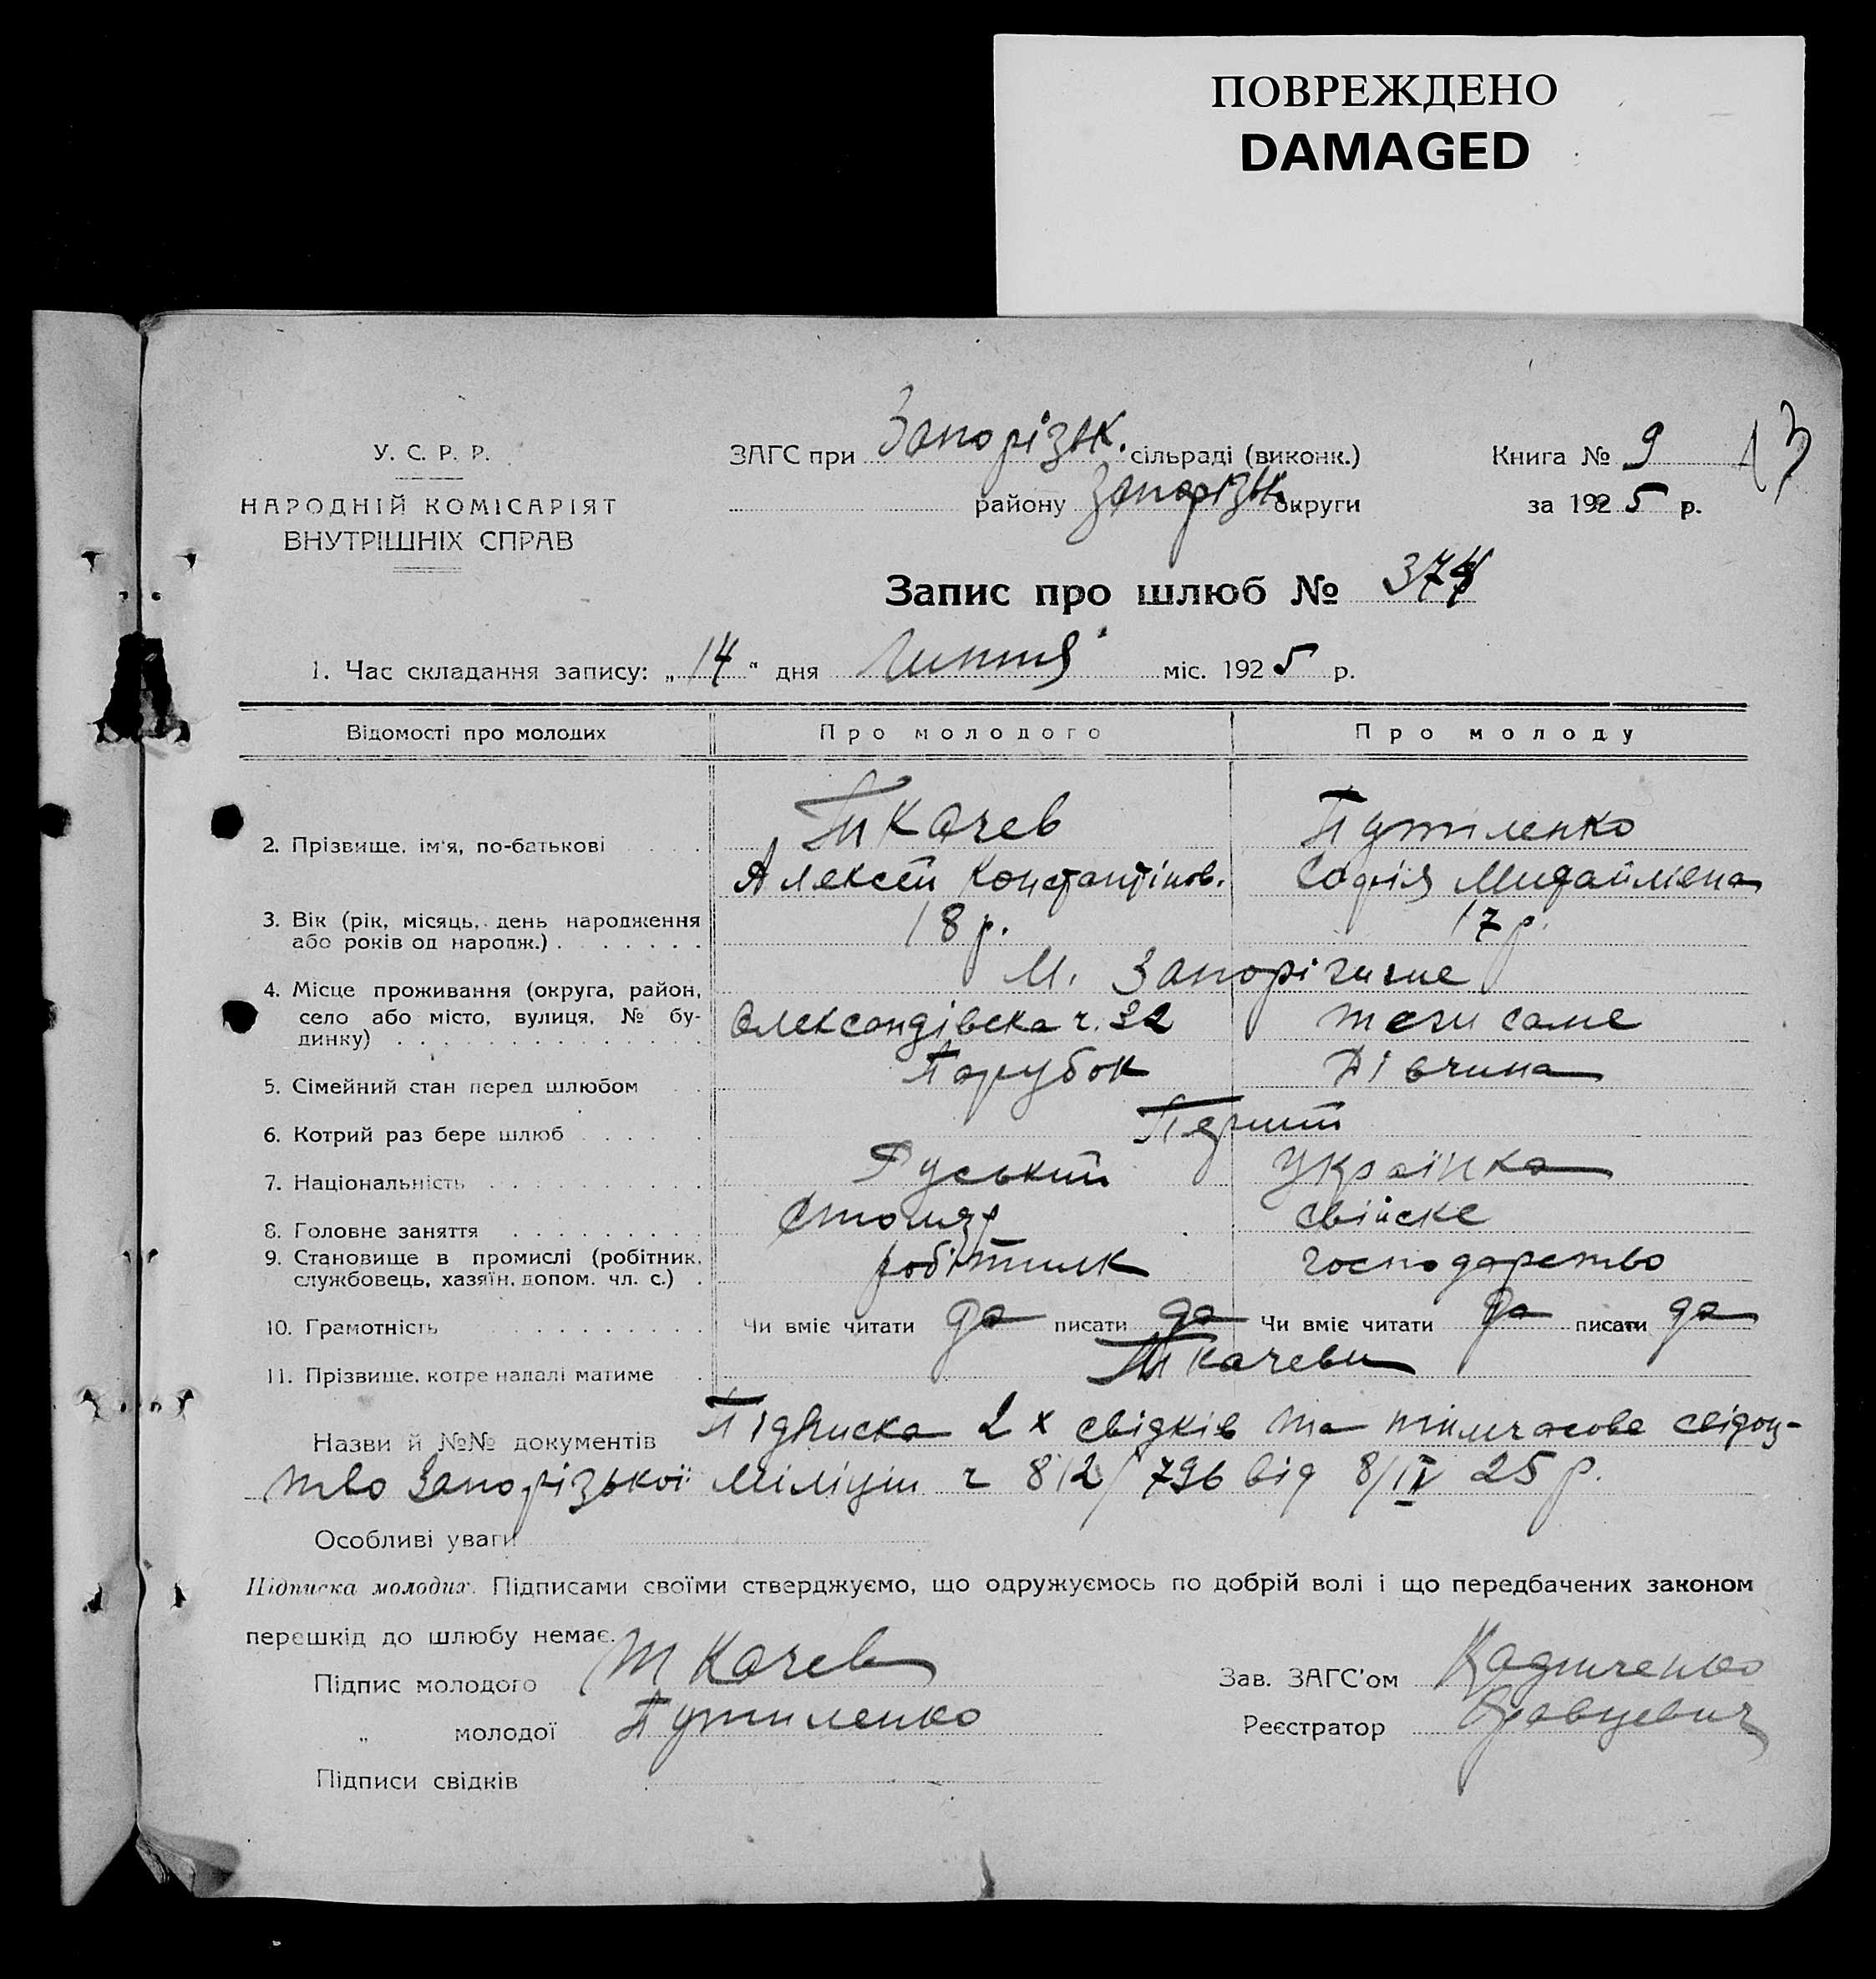 ПОВРЕЖДЕНО
DAMAGED
У. С. Р. Р.
НАРОДНІЙ КОМІСАРІЯТ
ВНУТРІШНІХ СПРАВ
ЗАГС при Запорізьк. сільраді (виконк.)
району Запорізьк. округи
Книга № 9
13
за 1925 р.
Запис про шлюб № 374
1. Час складання запису: „14“ дня Липня міс. 1925 р.
Відомості про молодих Про молодого Про молоду
2. Прізвище, ім'я, по-батькові Ткачев Путіленко
Алексій Константінов. Софія Михайлівна
3. Вік (рік, місяць, день народження 18 р. 17 р.
або років од народж.)
4. Місце проживання (округа, район, М. Запоріжже
село або місто, вулиця, № бу- Олександівська ч. 32 теж саме
динку)
5. Сімейний стан перед шлюбом Парубок Дівчина
6. Котрий раз бере шлюб Перший
7. Національність Руський Українка
8. Головне заняття Столяр свійске
9. Становище в промислі (робітник, робітник господарство
службовець, хазяїн, допом. чл. с.)
10. Грамотність Чи вміє читати да писати да Чи вміє читати да писати да
11. Прізвище, котре надалі матиме Ткачеви
Назви й №№ документів Підписка 2х свідків та тимчасове свідоц-
тво Запорізької міліції ч 812/796 від 8/IV 25 р.
Особливі уваги
Підписка молодих. Підписами своїми стверджуємо, що одружуємось по добрій волі і що передбачених законом
перешкід до шлюбу немає.
Підпис молодого Ткачев
„ молодої Путиленко
Зав. ЗАГС'ом
Реєстратор
Підписи свідків